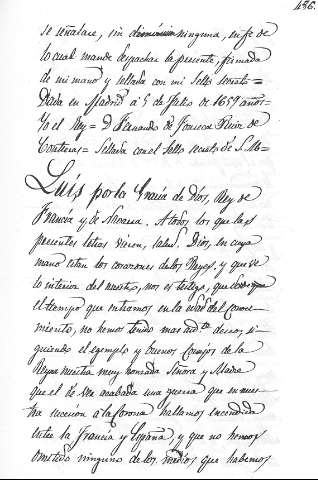 486.
se señalare, sin dimisión ninguna, en fe de
lo qual mandé despachar la presente, firmada
de mi mano y sellada con mi sello secreto =
Dada en Madrid a 5 de Julio de 1659 años =
Yo el Rey = D. Fernando de Fonseca Ruiz de
Contreras = Sellada con el Sello secreto de S. M =
Luis por la Gracia de Dios, Rey de
Francia y de Navarra. A todos los que las
presentes letras vieren, salud. Dios, en cuya
mano están los corazones de los Reyes, y que ve
lo interior del nuestro, nos es testigo, que
el tiempo que entramos en la edad del Conoci-
miento, no hemos tenido mas ard.te deseo, si-
guiendo el egemplo y buenos Consejos de la
Reyna nuestra muy honrada Señora y Madre
que el de ver acabada una guerra que en nues-
tra sucesion á la Corona hallamos encendida
entre la Francia y España, y que no hemos
omitido ninguno de los medios que habemos